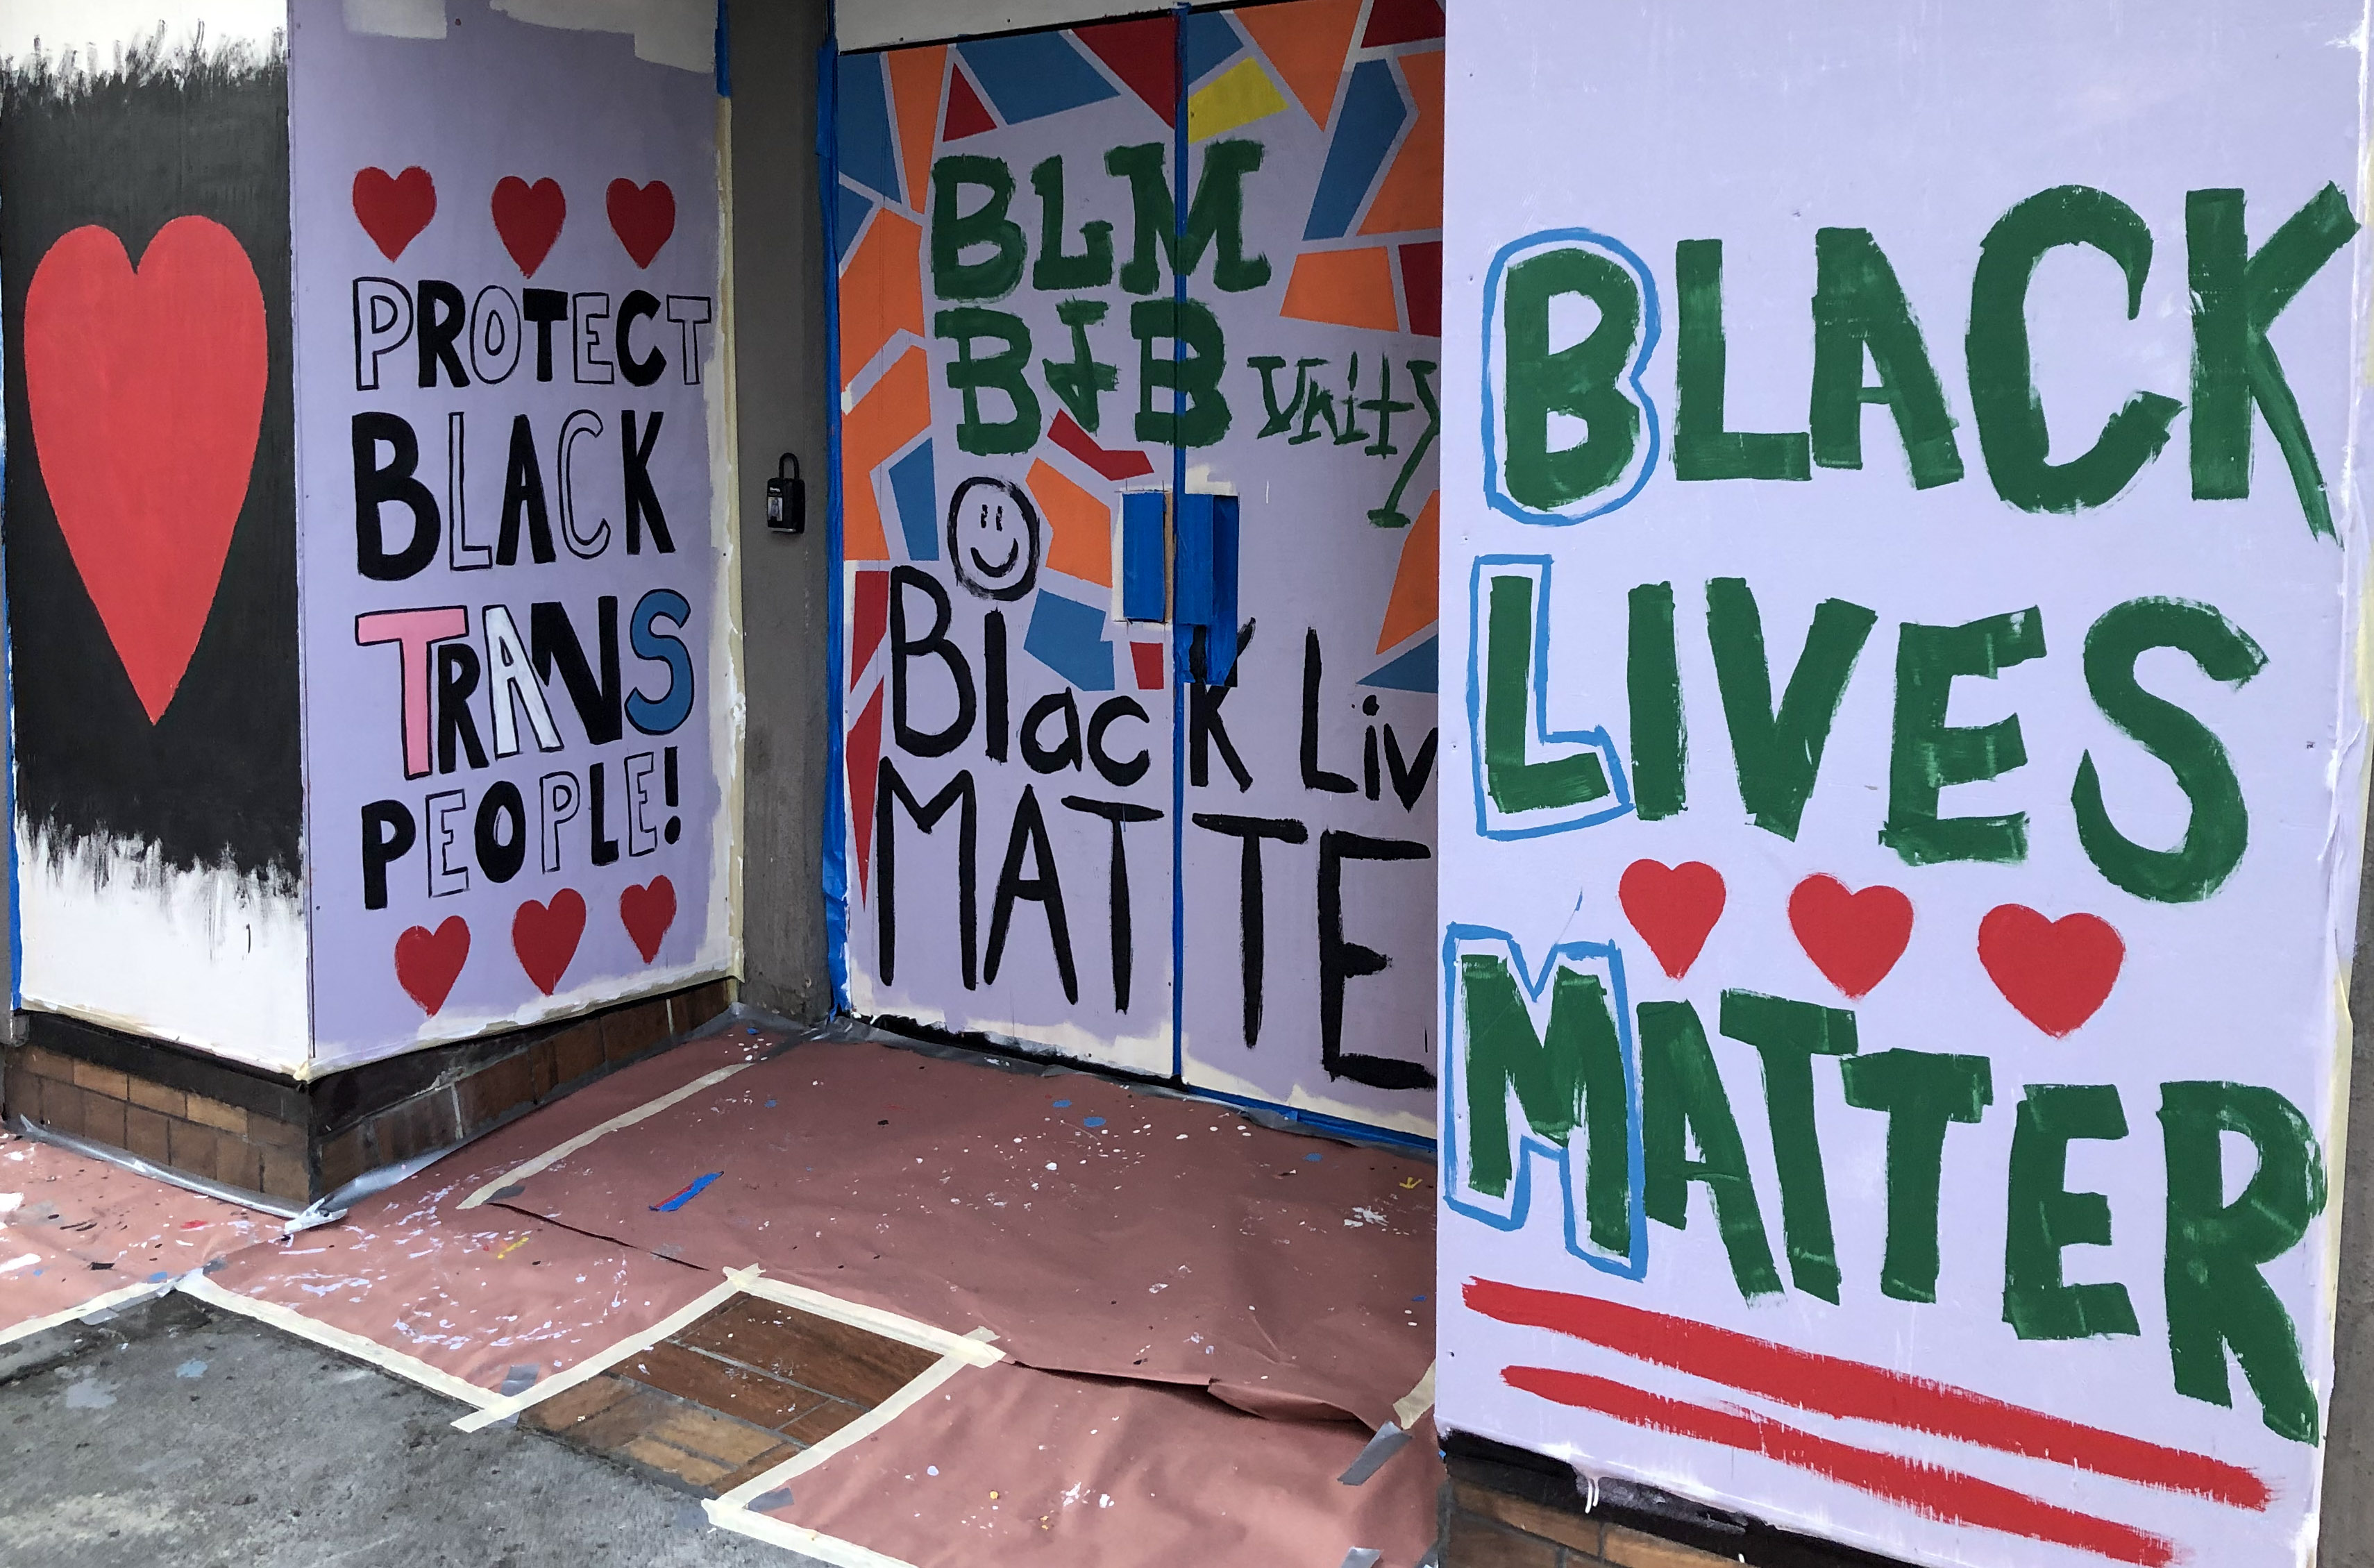 PROTECT
BLACK
TRANS
PEOPLE!
BLM
B&B Unity
Black Liv
MATTE
BLACK
LIVES
MATTER